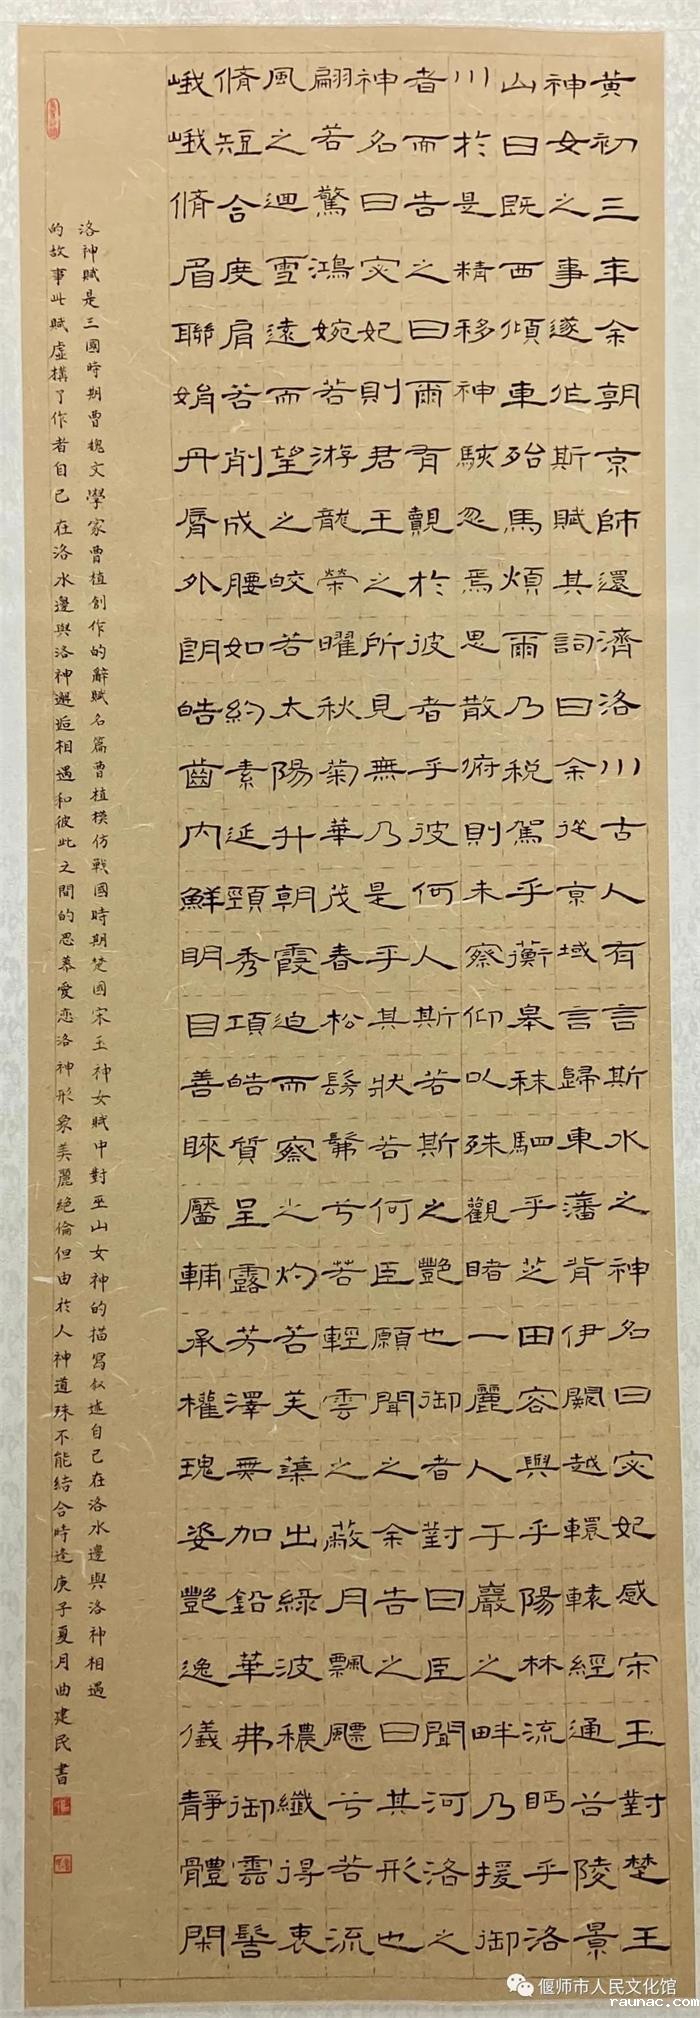 黄初三年余朝京師還濟洛川古人有言斯水之神名曰宓妃感宋玉對楚王
神女之事遂作斯賦其詞曰余從京域言歸東藩背伊闕越轘轅經通谷陵景
山曰既西傾車殆馬煩爾乃税駕乎蘅皋秣駟乎芝田容與乎陽林流眄乎洛
川於是精移神駭忽焉思散俯則未察仰以殊觀睹一麗人于巖之畔乃援御
者而告之曰爾有覿於彼者乎彼何人斯若斯之艷也御者對曰臣聞河洛之
神名曰宓妃則君王之所見無乃是乎其狀若何臣願聞之余告之曰其形也
翩若驚鴻婉若游龍榮曜秋菊華茂春松髣髴兮若輕雲之蔽月飄飖兮若流
風之迴雪遠而望之皎若太陽升朝霞迫而察之灼若芙蕖出綠波穠纖得衷
脩短合度肩若削成腰如約素延頸秀項皓質呈露芳澤無加鉛華弗御雲髻
峨峨脩眉聯娟丹脣外朗皓齒内鮮明目善睞靨輔承權瑰姿艷逸儀靜體閑
洛神賦是三國時期曹魏文學家曹植創作的辭賦名篇曹植模仿戰國時期楚國宋玉神女賦中對巫山女神的描寫叙述自己在洛水邊與洛神相遇
的故事此賦虚構了作者自己在洛水邊與洛神邂逅相遇和彼此之間的思慕愛恋洛神形象美麗絕倫但由於人神道殊不能結合時逢庚子夏月曲建民書
偃师市人民文化馆
raunac.com